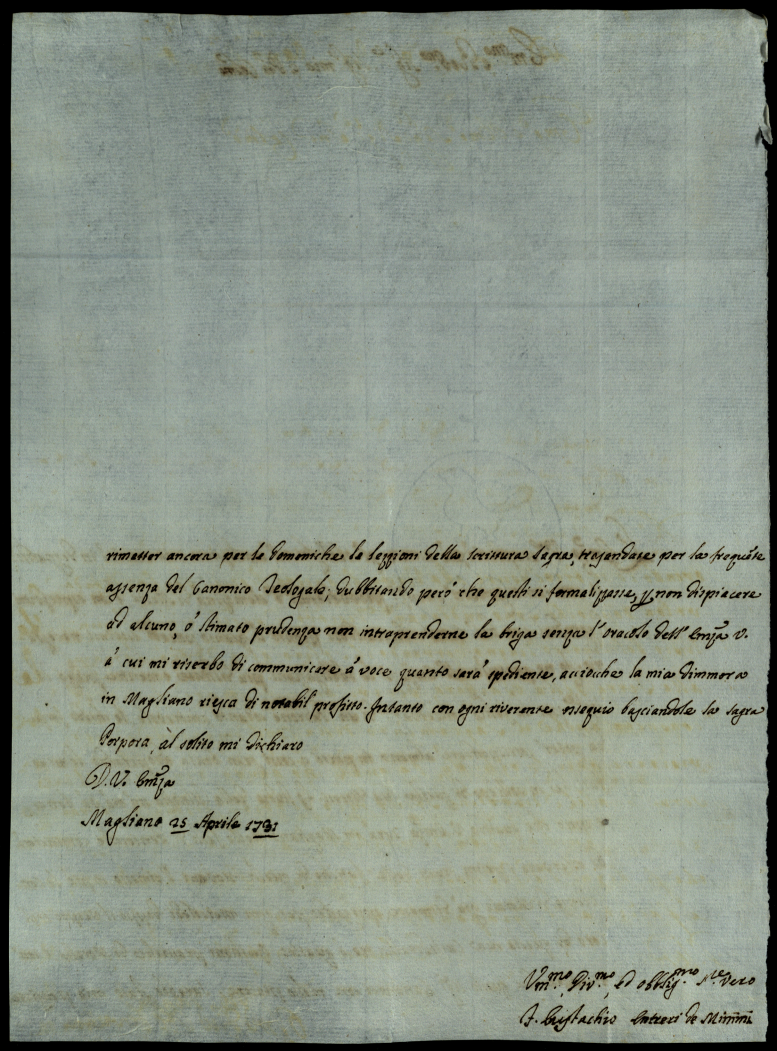 rimetter ancora per le Domeniche le lezzioni della scrittura sagra, trasandate per la frequẽte
assenza del Canonico Teologale; dubbitando però che questi si formalizzasse, p non dispiacere
ad alcuno, ò stimato prudenza non intraprenderne la briga senza l'oracolo dell' Emza V.
à cui mi riserbo di communicare à voce quanto sarà spediente, acciocche la mia dimmora
in Magliano riesca di notabil profitto. Intanto con ogni riverente ossequio basciandole la sagra
Porpora, àl solito mi dichiaro
D. V. Emza
Magliano 25 Aprile 1731
Vmmo, Divmo, ed obbligmo sre vero
F. Eustachio Entreri de Minimi